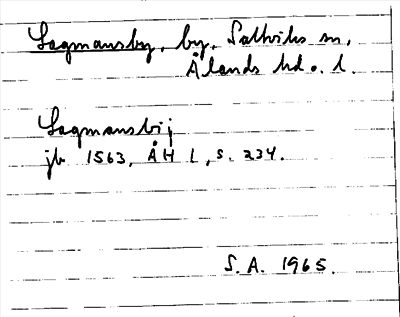 Lagmansby, by, Saltviks sn,
Ålands hd o. l.
Lagmansbij
jb 1563, ÅH 1, s. 234.
S. A. 1965.